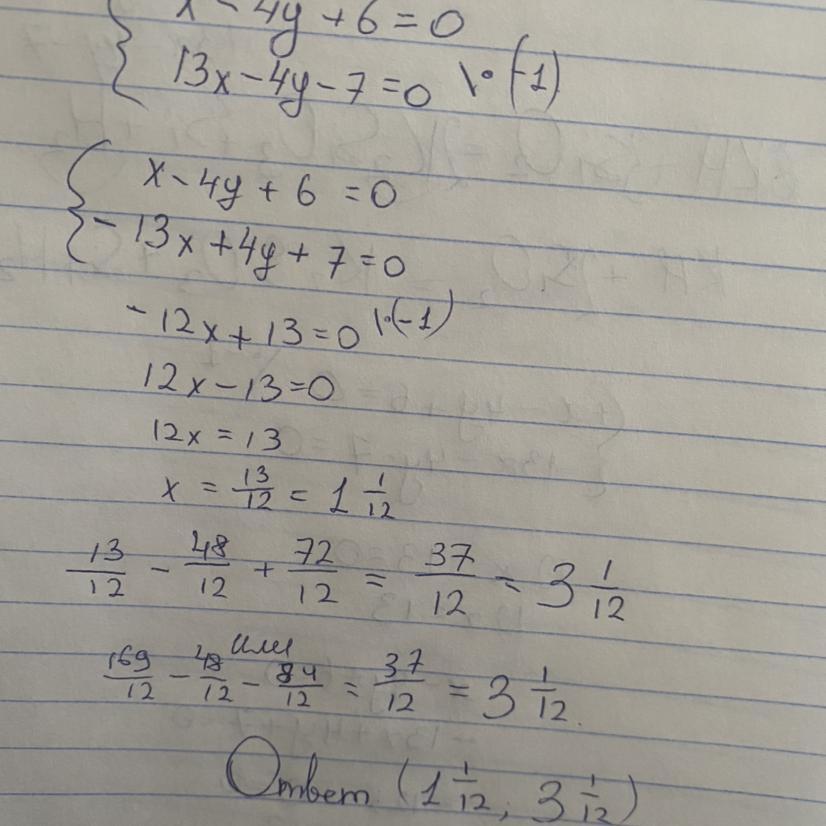 x - 4y + 6 = 0
13x - 4y - 7 = 0 \·(-1)
x - 4y + 6 = 0
- 13x + 4y + 7 = 0
- 12x + 13 = 0 |·(-1)
12x - 13 = 0
12x = 13
x = 13/12 = 1 1/12
13/12 - 48/12 + 72/12 = 37/12 = 3 1/12
или
169/12 - 48/12 - 84/12 = 37/12 = 3 1/12.
Ответ (1 1/12; 3 1/12)